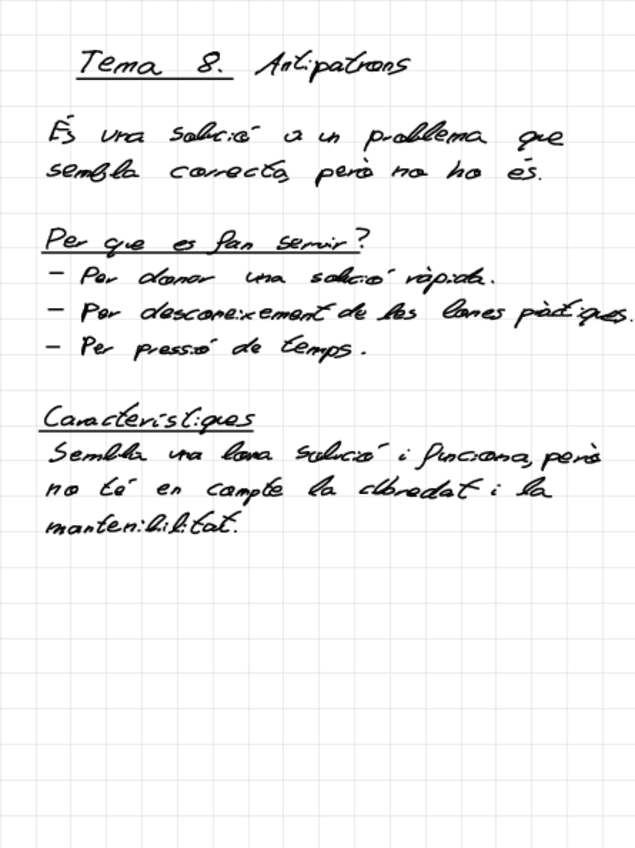 Tema 8. Antipatrons
És una solució a un problema que
sembla correcta, però no ho és.
Per que es fan servir?
- Per donar una solució ràpida.
- Per desconeixement de les bones pràctiques.
- Per pressió de temps.
Característiques
Sembla una bona solució i funciona, però
no té en compte la claredat i la
mantenibilitat.